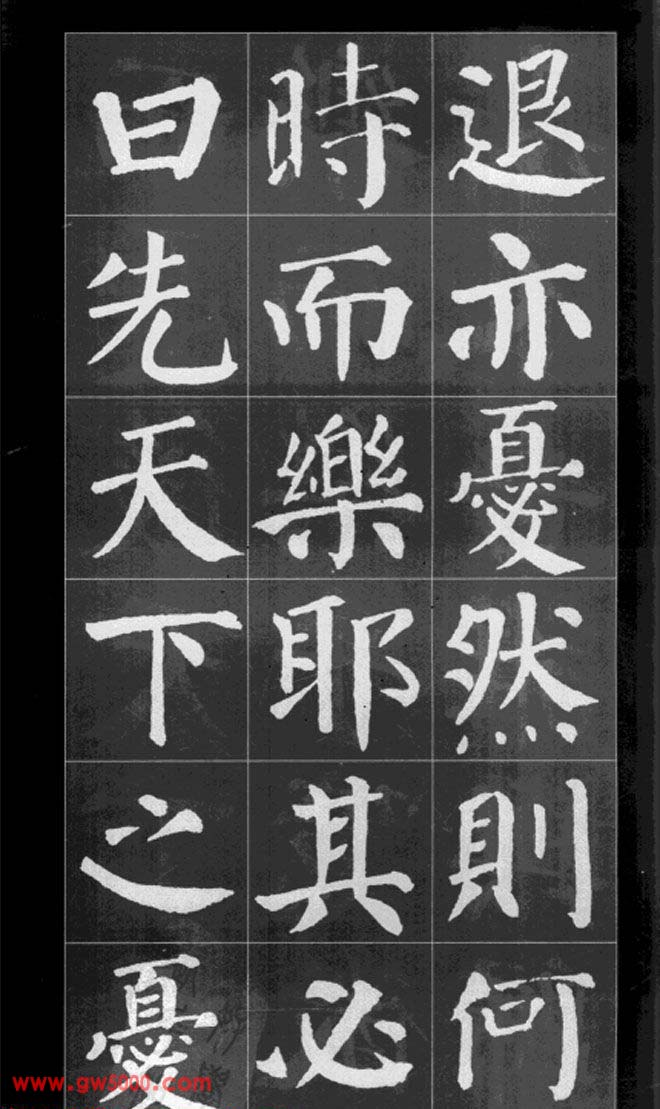 退亦憂然則何
時而樂耶其必
曰先天下之憂
www.gw5000.com